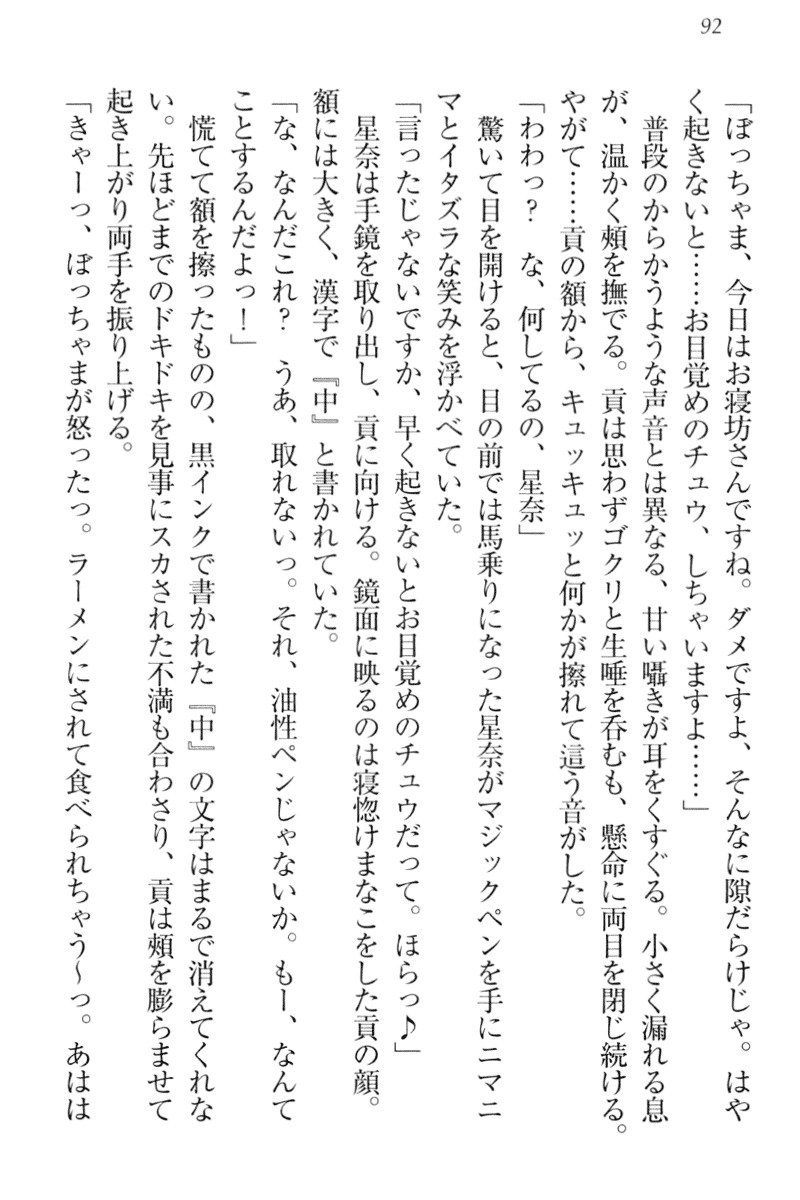 92
「ぼっちゃま、今日はお寝坊さんですね。ダメですよ、そんなに隙だらけじゃ。はや
く起きないと……お目覚めのチュウ、しちゃいますよ……」
　普段のからかうような声音とは異なる、甘い囁きが耳をくすぐる。小さく漏れる息
が、温かく頰を撫でる。貢は思わずゴクリと生唾を呑むも、懸命に両目を閉じ続ける。
やがて……貢の額から、キュッキュッと何かが擦れて這う音がした。
「わわっ？　な、何してるの、星奈」
　驚いて目を開けると、目の前では馬乗りになった星奈がマジックペンを手にニマニ
マとイタズラな笑みを浮かべていた。
「言ったじゃないですか、早く起きないとお目覚めのチュウだって。ほらっ♪」
　星奈は手鏡を取り出し、貢に向ける。鏡面に映るのは寝惚けまなこをした貢の顔。
額には大きく、漢字で『中』と書かれていた。
「な、なんだこれ？　うあ、取れないっ。それ、油性ペンじゃないか。もー、なんて
ことするんだよっ！」
　慌てて額を擦ったものの、黒インクで書かれた『中』の文字はまるで消えてくれな
い。先ほどまでのドキドキを見事にスカされた不満も合わさり、貢は頰を膨らませて
起き上がり両手を振り上げる。
「きゃーっ、ぼっちゃまが怒ったっ。ラーメンにされて食べられちゃう～っ。あはは